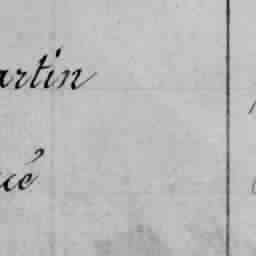 artin
ué